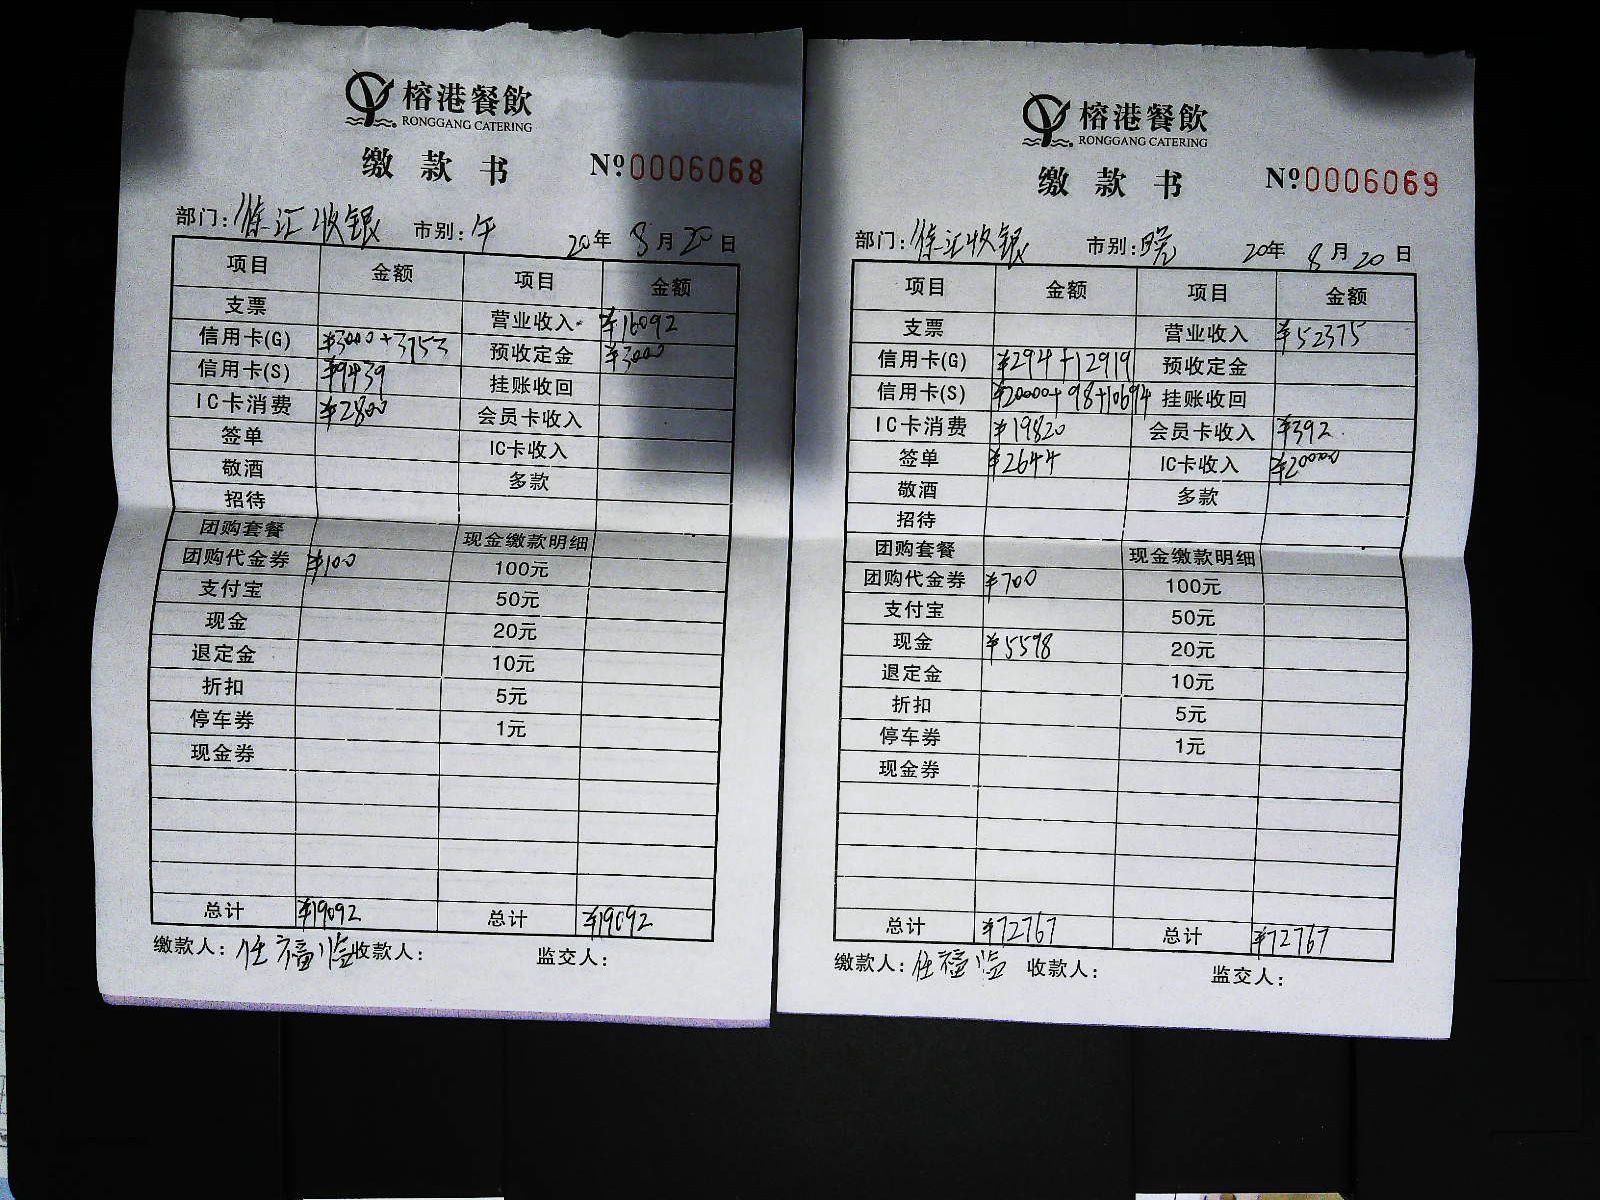 榕港餐飲
RONGGANG CATERING
缴款书 Nº0006068
部门: 徐汇收银 市别: 午 20年 8月 20日
项目 金额 项目 金额
支票 营业收入 ¥16092
信用卡(G) ¥3000+3753 预收定金 ¥3000
信用卡(S) ¥9439 挂账收回
IC卡消费 ¥2800 会员卡收入
签单 IC卡收入
敬酒 多款
招待
团购套餐 现金缴款明细
团购代金券 ¥100 100元
支付宝 50元
现金 20元
退定金 10元
折扣 5元
停车券 1元
现金券
总计 ¥19092 总计 ¥19092
缴款人: 任福 收款人: 监交人:
榕港餐飲
RONGGANG CATERING
缴款书 Nº0006069
部门: 徐汇收银 市别: 晚 20年 8月 20日
项目 金额 项目 金额
支票 营业收入 ¥52375
信用卡(G) ¥294+12919 预收定金
信用卡(S) ¥20000+98+10694 挂账收回
IC卡消费 ¥19820 会员卡收入 ¥392
签单 ¥2644 IC卡收入 ¥20000
敬酒 多款
招待
团购套餐 现金缴款明细
团购代金券 ¥700 100元
支付宝 50元
现金 ¥5598 20元
退定金 10元
折扣 5元
停车券 1元
现金券
总计 ¥72767 总计 ¥72767
缴款人: 任福 收款人: 监交人: